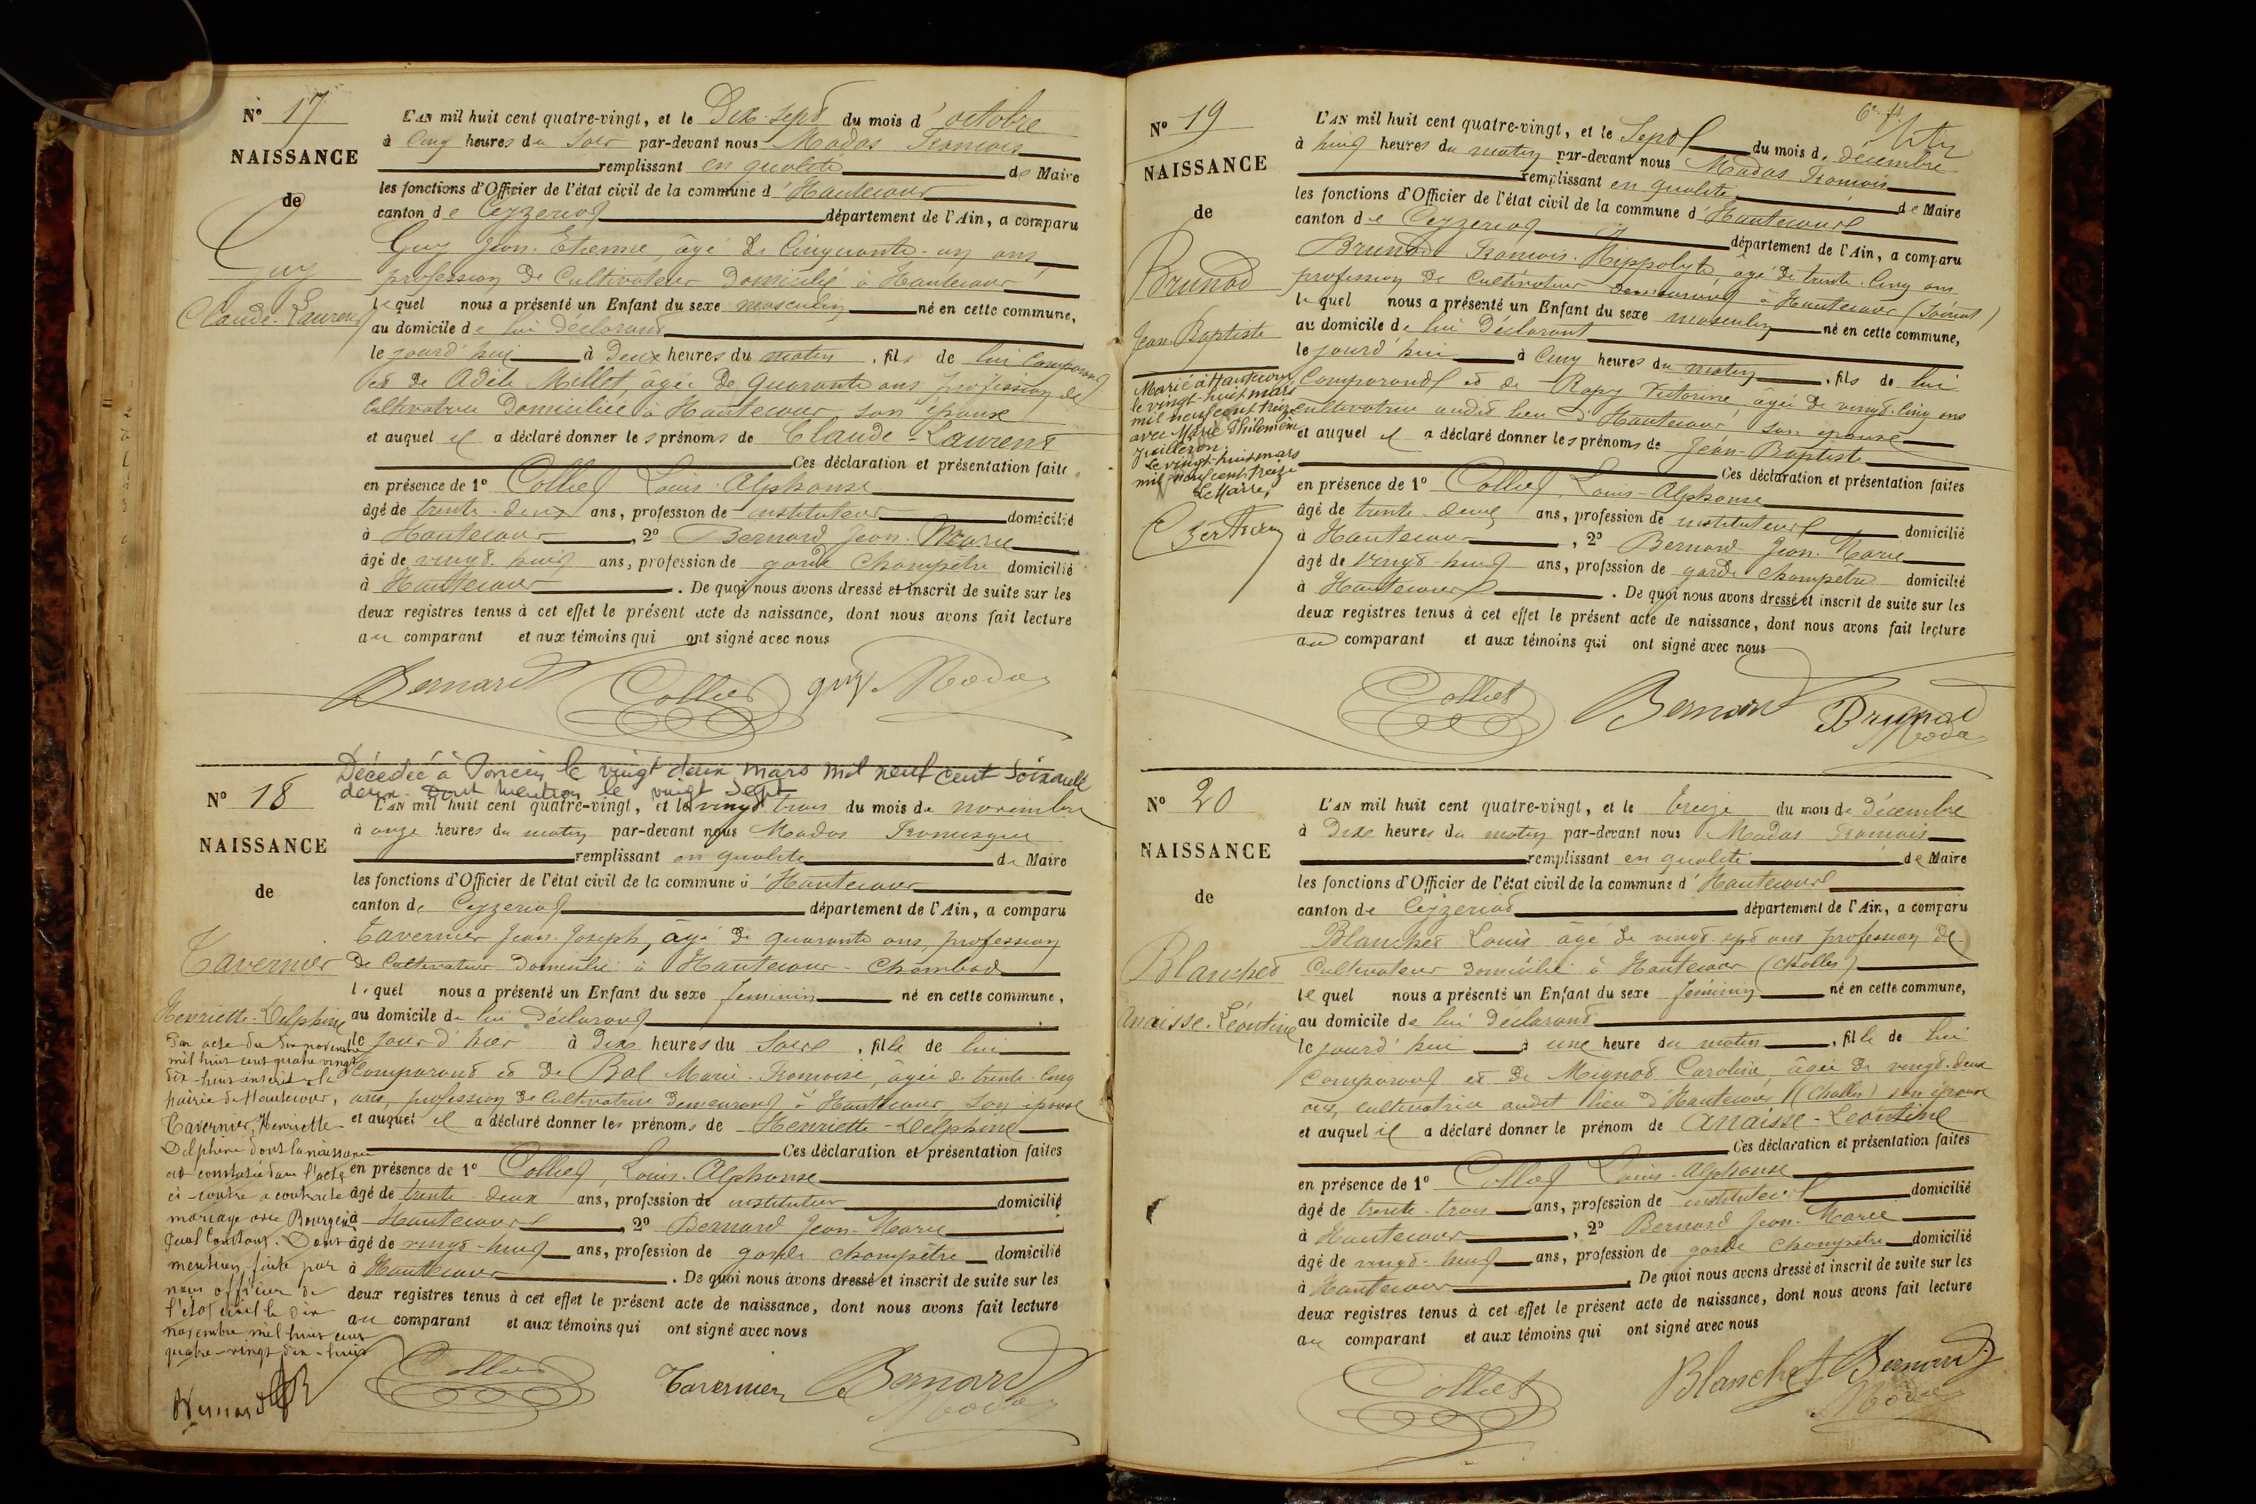 N° 17
NAISSANCE
de
Guy
Claude-Laurent
L'AN mil huit cent quatre-vingt, et le Dix-sept du mois d'octobre
à Cinq heures du Soir par-devant nous Modas François
remplissant en qualité de Maire
les fonctions d'Officier de l'état civil de la commune d'Hautecour
canton de Ceyzeriat département de l'Ain, a comparu
Guy Jean-Etienne, âgé de Cinquante-un ans,
profession de Cultivateur Domicilié à Hautecour
lequel nous a présenté un Enfant du sexe masculin né en cette commune,
au domicile de lui Déclarant
le jourd'hui à Deux heures du matin, fils de lui Comparant
et de Adèle Millot, âgée de quarante ans profession de
Cultivatrice Domiciliée à Hautecour, son épouse
et auquel il a déclaré donner les prénoms de Claude-Laurent
Ces déclaration et présentation faite
en présence de 1° Colliet Louis-Alphonse
âgé de trente-deux ans, profession de instituteur domicilié
à Hautecour, 2° Bernard Jean-Marie
âgé de vingt-huit ans, profession de garde Champêtre domicilié
à Hautecour. De quoi nous avons dressé et inscrit de suite sur les
deux registres tenus à cet effet le présent acte de naissance, dont nous avons fait lecture
au comparant et aux témoins qui ont signé avec nous
Bernard Colliet guy Modas
Décédée à Poncin le vingt deux mars mil neuf cent soixante
deux. Dont mention le vingt sept
N° 18
NAISSANCE
de
Tavernier
Henriette-Delphine
Par acte du dix novembre
mil huit cent quatre vingt
dix-huit inscrit à la
mairie de Hautecour,
Tavernier, Henriette
Delphine dont la naissance
est constatée dans l'acte
ci-contre a contracté
mariage avec Bourgeois
Constant. Dont
mention faite par
nous officier de
l'état civil le dix
novembre mil huit cent
quatre-vingt dix-huit
Bernard
L'AN mil huit cent quatre-vingt, et le vingt trois du mois de novembre
à onze heures du matin par-devant nous Modas François
remplissant en qualité de Maire
les fonctions d'Officier de l'état civil de la commune d'Hautecour
canton de Ceyzeriat département de l'Ain, a comparu
Tavernier Jean-Joseph, âgé de quarante ans, profession
de Cultivateur Domicilié à Hautecour-Chambod
lequel nous a présenté un Enfant du sexe féminin né en cette commune,
au domicile de lui Déclarant
le jour d'hier à Dix heures du Soir, fille de lui
Comparant et de Bal Marie-Françoise, âgée de trente-cinq
ans, profession de Cultivatrice demeurant à Hautecour, son épouse
et auquel il a déclaré donner les prénoms de Henriette-Delphine
Ces déclaration et présentation faites
en présence de 1° Colliet, Louis-Alphonse
âgé de trente-deux ans, profession de instituteur domicilié
à Hautecour, 2° Bernard Jean-Marie
âgé de vingt-huit ans, profession de garde champêtre domicilié
à Hautecour. De quoi nous avons dressé et inscrit de suite sur les
deux registres tenus à cet effet le présent acte de naissance, dont nous avons fait lecture
au comparant et aux témoins qui ont signé avec nous
Colliet Tavernier Bernard
Modas
N° 19
NAISSANCE
de
Brunod
Jean-Baptiste
Marié à Hautecour
le vingt-huit mars
mil neuf cent treize
avec Marie Philomène
Juilleron
Le vingt-huit mars
mil neuf cent treize
Le Maire,
L'AN mil huit cent quatre-vingt, et le Sept du mois de décembre
à huit heures du matin par-devant nous Modas François
remplissant en qualité de Maire
les fonctions d'Officier de l'état civil de la commune d'Hautecour
canton de Ceyzeriat département de l'Ain, a comparu
Brunod François-Hippolyte, âgé de trente-cinq ans
profession de Cultivateur demeurant à Hautecour
lequel nous a présenté un Enfant du sexe masculin né en cette commune,
au domicile de lui Déclarant
le jourd'hui à Cinq heures du matin, fils de lui
Comparant et de Rapy Victorine, âgée de vingt-cinq ans
cultivatrice audit lieu d'Hautecour, son épouse
et auquel il a déclaré donner les prénoms de Jean-Baptiste
Ces déclaration et présentation faites
en présence de 1° Colliet, Louis-Alphonse
âgé de trente-deux ans, profession de instituteur domicilié
à Hautecour, 2° Bernard Jean-Marie
âgé de vingt-huit ans, profession de garde champêtre domicilié
à Hautecour. De quoi nous avons dressé et inscrit de suite sur les
deux registres tenus à cet effet le présent acte de naissance, dont nous avons fait lecture
au comparant et aux témoins qui ont signé avec nous
Colliet Bernard Brunod
Modas
N° 20
NAISSANCE
de
Blanchet
Anaisse-Léontine
L'AN mil huit cent quatre-vingt, et le treize du mois de Décembre
à Dix heures du matin par-devant nous Modas François
remplissant en qualité de Maire
les fonctions d'Officier de l'état civil de la commune d'Hautecour
canton de Ceyzeriat département de l'Ain, a comparu
Blanchet Louis âgé de vingt-sept ans profession de
Cultivateur domicilié à Hautecour (Challes)
lequel nous a présenté un Enfant du sexe féminin né en cette commune,
au domicile de lui Déclarant
le jourd'hui à une heure du matin, fille de lui
Comparant et de Mignot Caroline, âgée de vingt-deux
ans, cultivatrice audit lieu d'Hautecour (Challes) son épouse
et auquel il a déclaré donner le prénom de Anaisse-Léontine
Ces déclaration et présentation faites
en présence de 1° Colliet Louis-Alphonse
âgé de trente-trois ans, profession de instituteur domicilié
à Hautecour, 2° Bernard Jean-Marie
âgé de vingt-huit ans, profession de garde Champêtre domicilié
à Hautecour. De quoi nous avons dressé et inscrit de suite sur les
deux registres tenus à cet effet le présent acte de naissance, dont nous avons fait lecture
au comparant et aux témoins qui ont signé avec nous
Colliet Blanchet Bernard
Modas